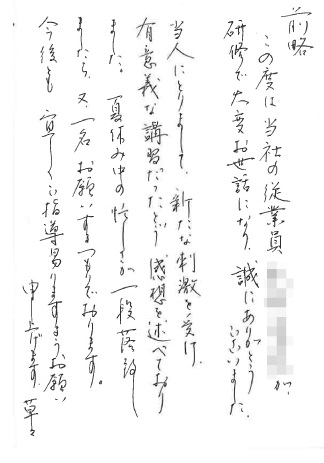 前略
この度は当社の従業員　　が、
研修で大変お世話になり、誠にありがとう
ございました。
当人にとりまして、新たな刺激を受け、
有意義な講習だったという感想を述べており
ました。夏休み中の忙しさが一段落致し
ましたら、又一名お願いするつもりでおります。
今後も宜しくご指導賜りますようお願い
申し上げます。草々